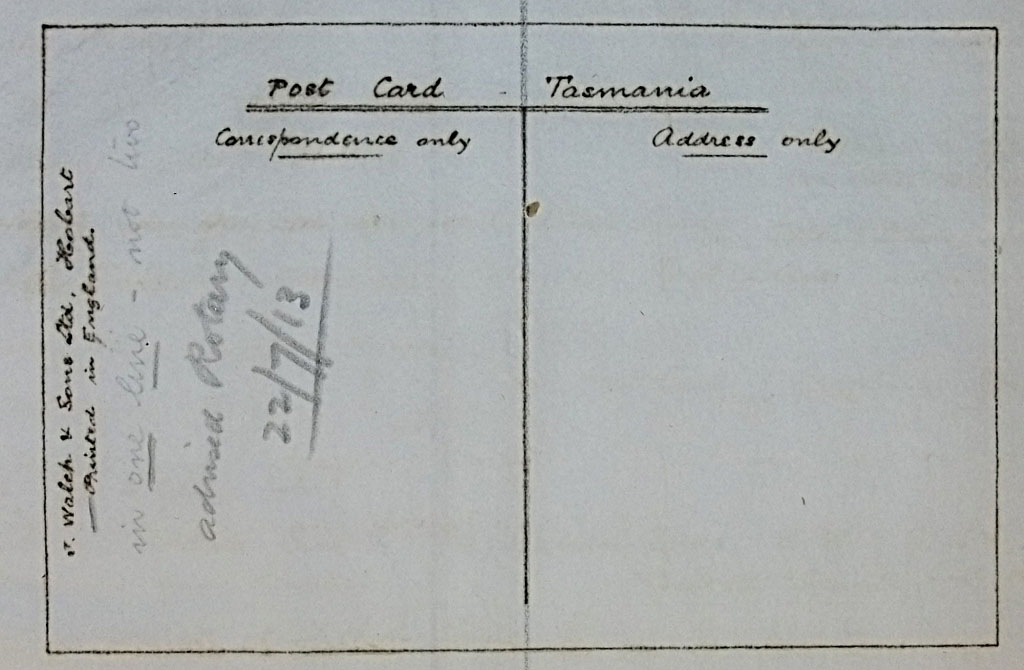 Post Card - Tasmania
Correspondence only
Address only
J. Walch & Sons Ltd, Hobart
— Printed in England.
in one line - not two
advised Rotary
22/7/13